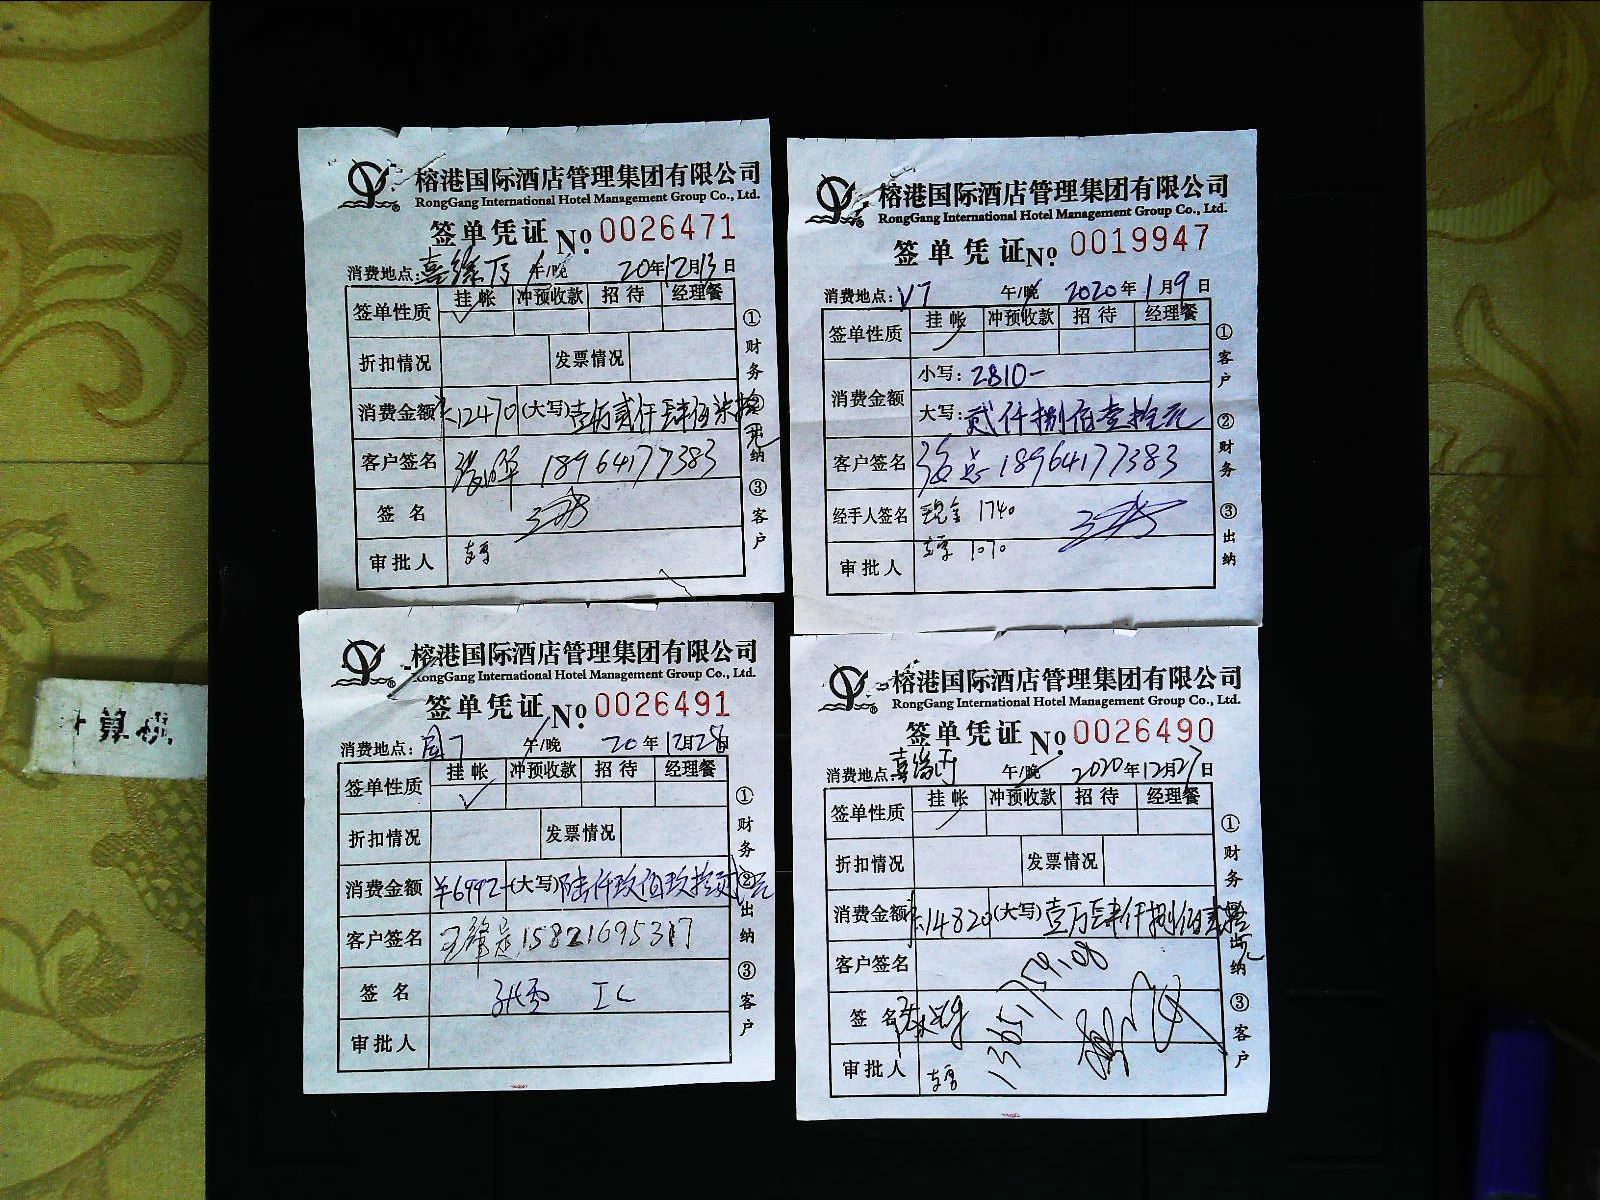 榕港国际酒店管理集团有限公司
RongGang International Hotel Management Group Co., Ltd.
签单凭证 No. 0026471
消费地点: 午/晚 20年12月13日
签单性质 挂帐 冲预收款 招待 经理餐
折扣情况 发票情况
消费金额 12470 (大写) 壹万贰仟肆佰柒拾元
客户签名 18964177383
签名
审批人
①财务 ②出纳 ③客户
榕港国际酒店管理集团有限公司
RongGang International Hotel Management Group Co., Ltd.
签单凭证 No. 0019947
消费地点: V7 午/晚 2020年1月9日
签单性质 挂帐 冲预收款 招待 经理餐
消费金额 小写: 2810-
大写: 贰仟捌佰壹拾元
客户签名 18964177383
经手人签名 现金 1740
1070
审批人
①客户 ②财务 ③出纳
榕港国际酒店管理集团有限公司
RongGang International Hotel Management Group Co., Ltd.
签单凭证 No. 0026491
消费地点: 午/晚 20年12月28日
签单性质 挂帐 冲预收款 招待 经理餐
折扣情况 发票情况
消费金额 ¥6992- (大写) 陆仟玖佰玖拾贰元
客户签名 15821695317
签名
审批人
①财务 ②出纳 ③客户
榕港国际酒店管理集团有限公司
RongGang International Hotel Management Group Co., Ltd.
签单凭证 No. 0026490
消费地点: 午/晚 2020年12月27日
签单性质 挂帐 冲预收款 招待 经理餐
折扣情况 发票情况
消费金额 14820 (大写) 壹万肆仟捌佰贰拾元
客户签名
签名
审批人
①财务 ②出纳 ③客户